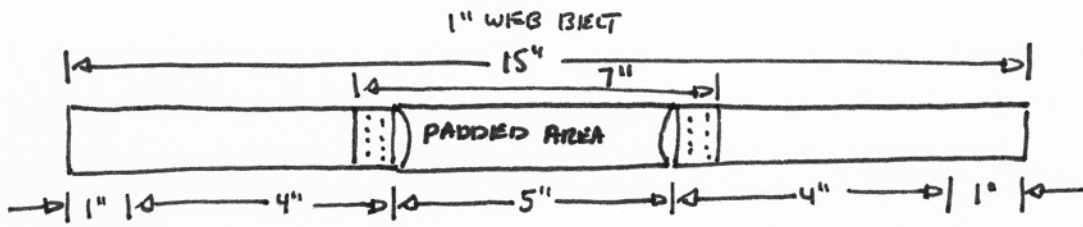 1" WEB BELT
15"
7"
PADDED AREA
1" 4" 5" 4" 1"